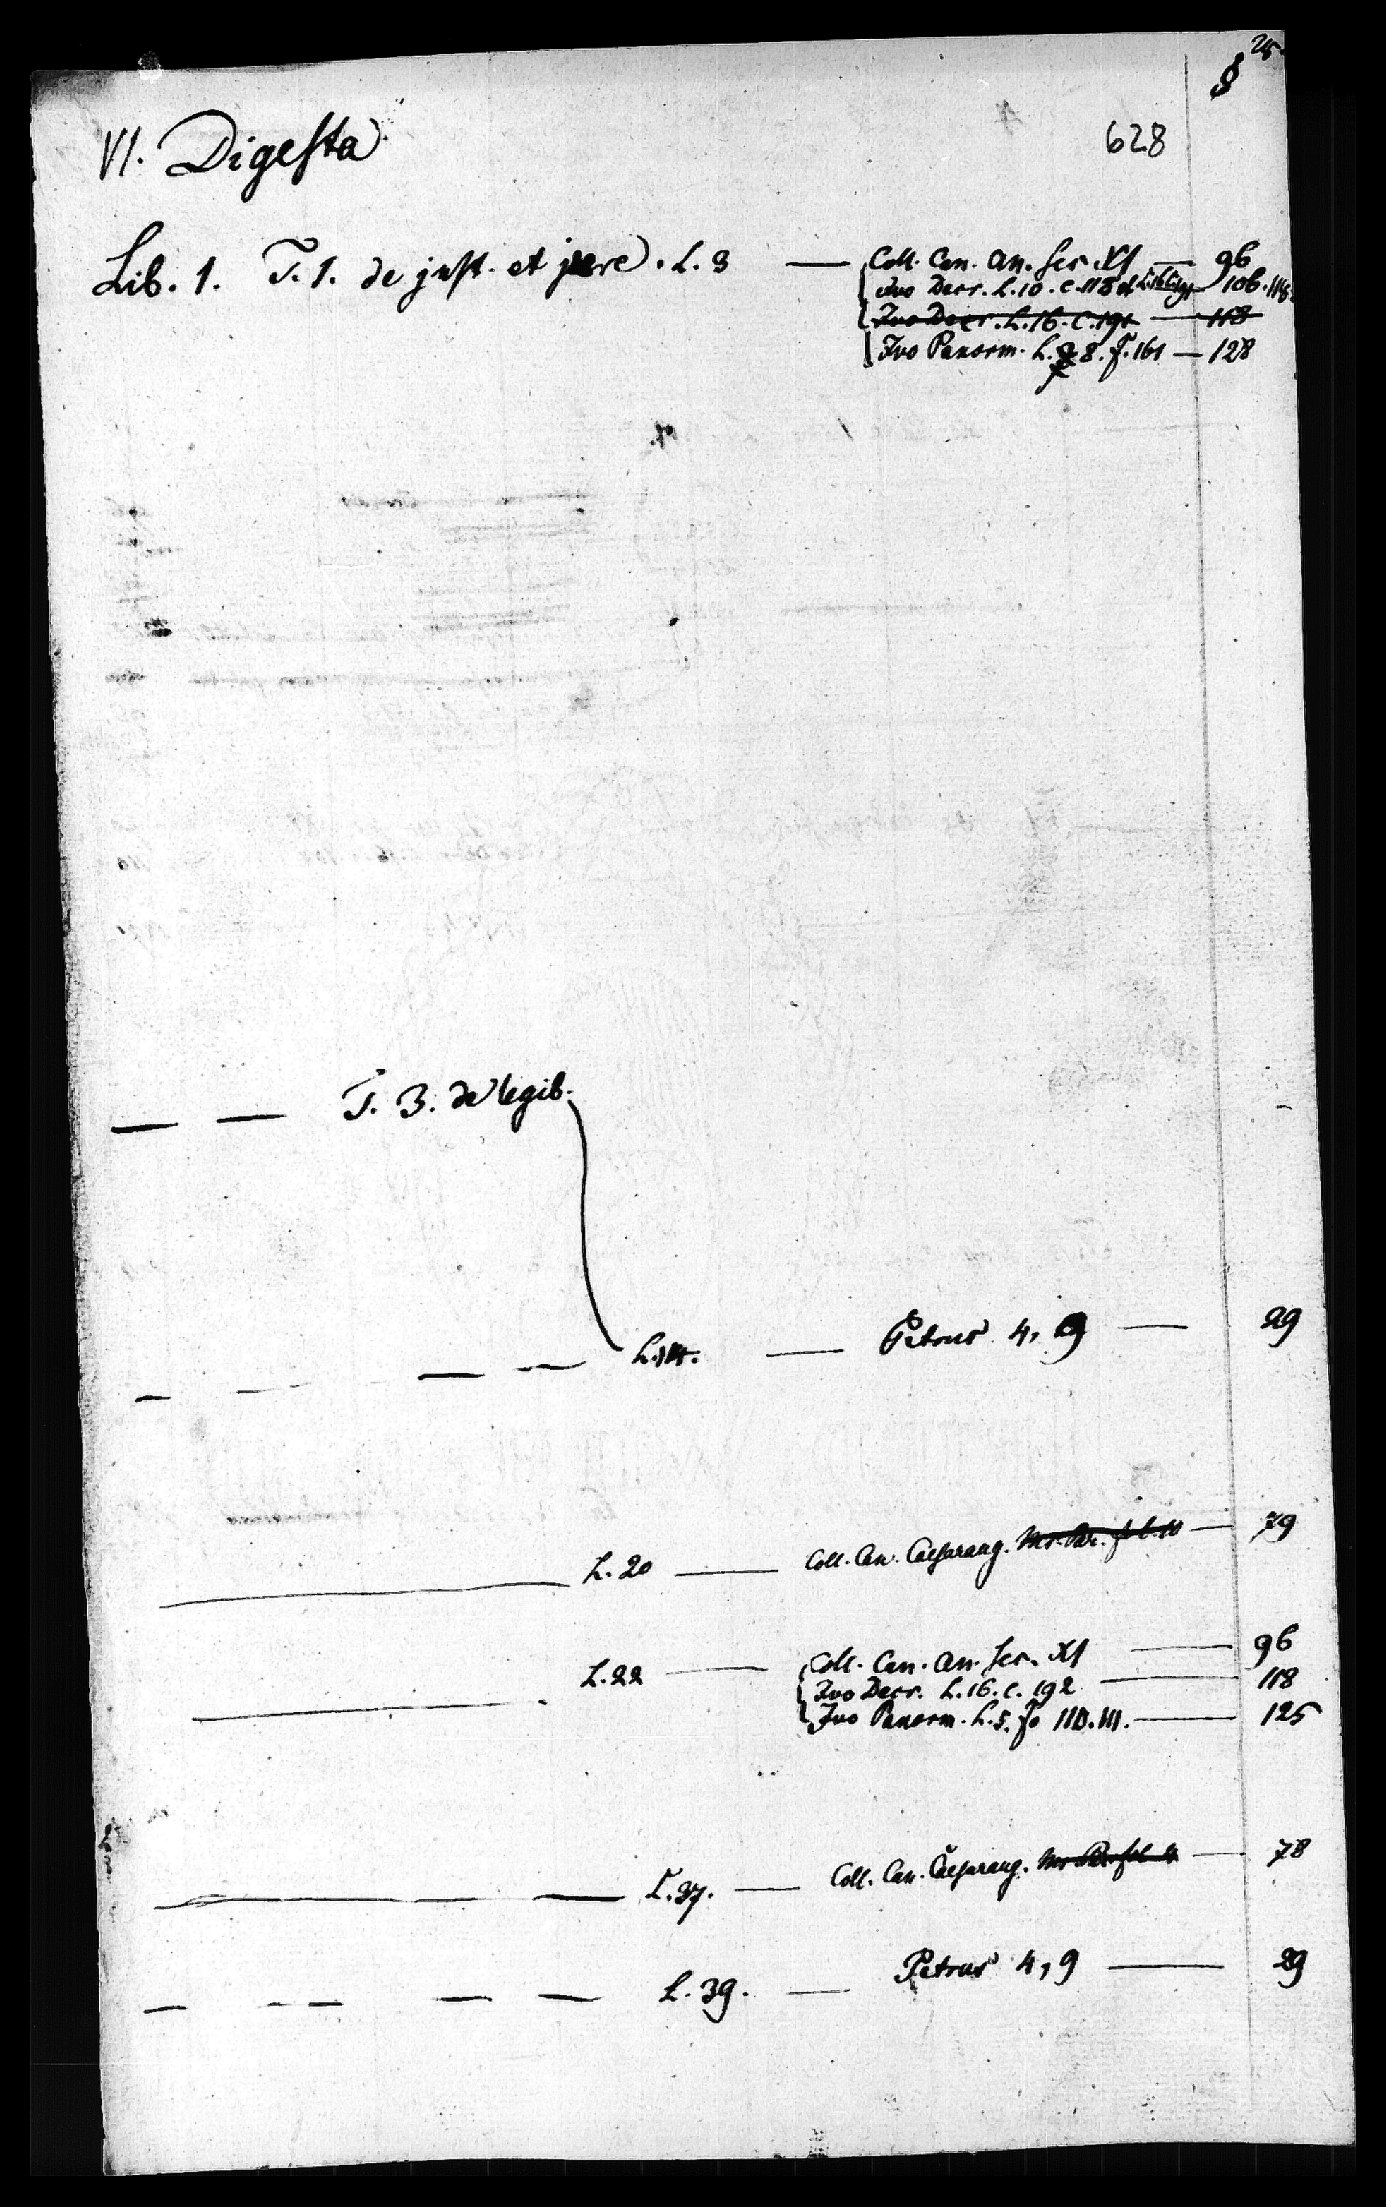 25
§
628
VI. Digesta
Lib. 1. T. 1. de just. et jure. L. 3 — Coll. Can. an. sec. XI — 96
Ivo Decr. L. 10. c. 115 et L. 16. C. 191 106. 118.
Ivo Decr. L. 16. C. 191 — 118
Ivo Panorm. L. 8. f. 161 — 128
— — T. 3. de legib.
— — — — L. 14. — Petrus 4, 9 — 29
— L. 20 — Coll. Can. Caesaraug. — 79
— L. 22 — Coll. Can. an. sec. XI — 96
Ivo Decr. L. 16. c. 192 — 118
Ivo Panorm. L. 5. fo 110. 111. — 125
— L. 37. — Coll. Can. Caesaraug. — 78
— — — — — L. 39. — Petrus 4, 9 — 29